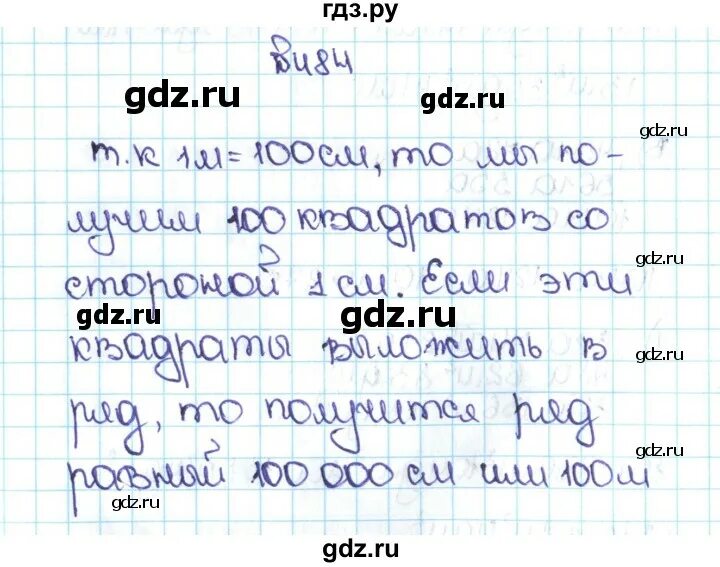 гдз.ру
В484
gdz.ru gdz.ru
т.к 1м=100см, то мы по-
gdz.ru
лучим 100 квадратов со
gdz.ru
стороной 1 см. Если эти
gdz.ru gdz.ru
квадраты выложить в
gdz.ru
ряд, то получится ряд
gdz.ru
равный 100 000 см или 100м
gdz.ru
gdz.ru